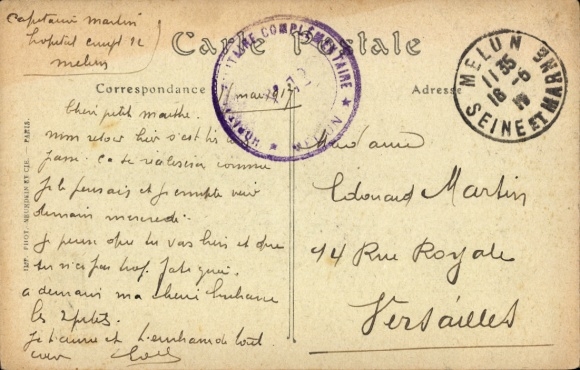 Capitaine Martin
hopital compl 12
Melun
Carte Postale
Correspondance
Adresse
HOPITAL MILITAIRE COMPLÉMENTAIRE
MELUN
MELUN
11 35
16 -6
SEINE ET MARNE
Cheri petit
mon retour hier s'est
comme
Je le pensais et je compte venir
demain mercredi.
Je pense que tu vas bien et que
tu n'es pas trop fatiguée.
a demain ma cherie embrasse
les 2 petits.
Je t'aime et t'embrasse de tout
coeur
Madame
Edouard Martin
14 Rue Royale
Versailles
IMP. PHOT. NEURDEIN ET CIE. - PARIS.